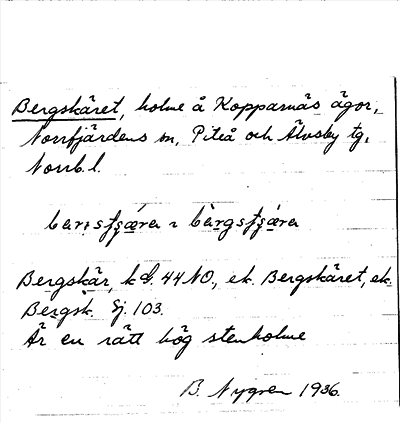 Bergskäret, holme å Kopparnäs ägor,
Norrfjärdens sn, Piteå och Älvsby tg,
Norrb. l.
Bergskär, kbl. 44 NO., ek. Bergskäret, ek.
Bergsk. Sj. 103.
Är en rätt hög stenholme
B. Nygren 1936.